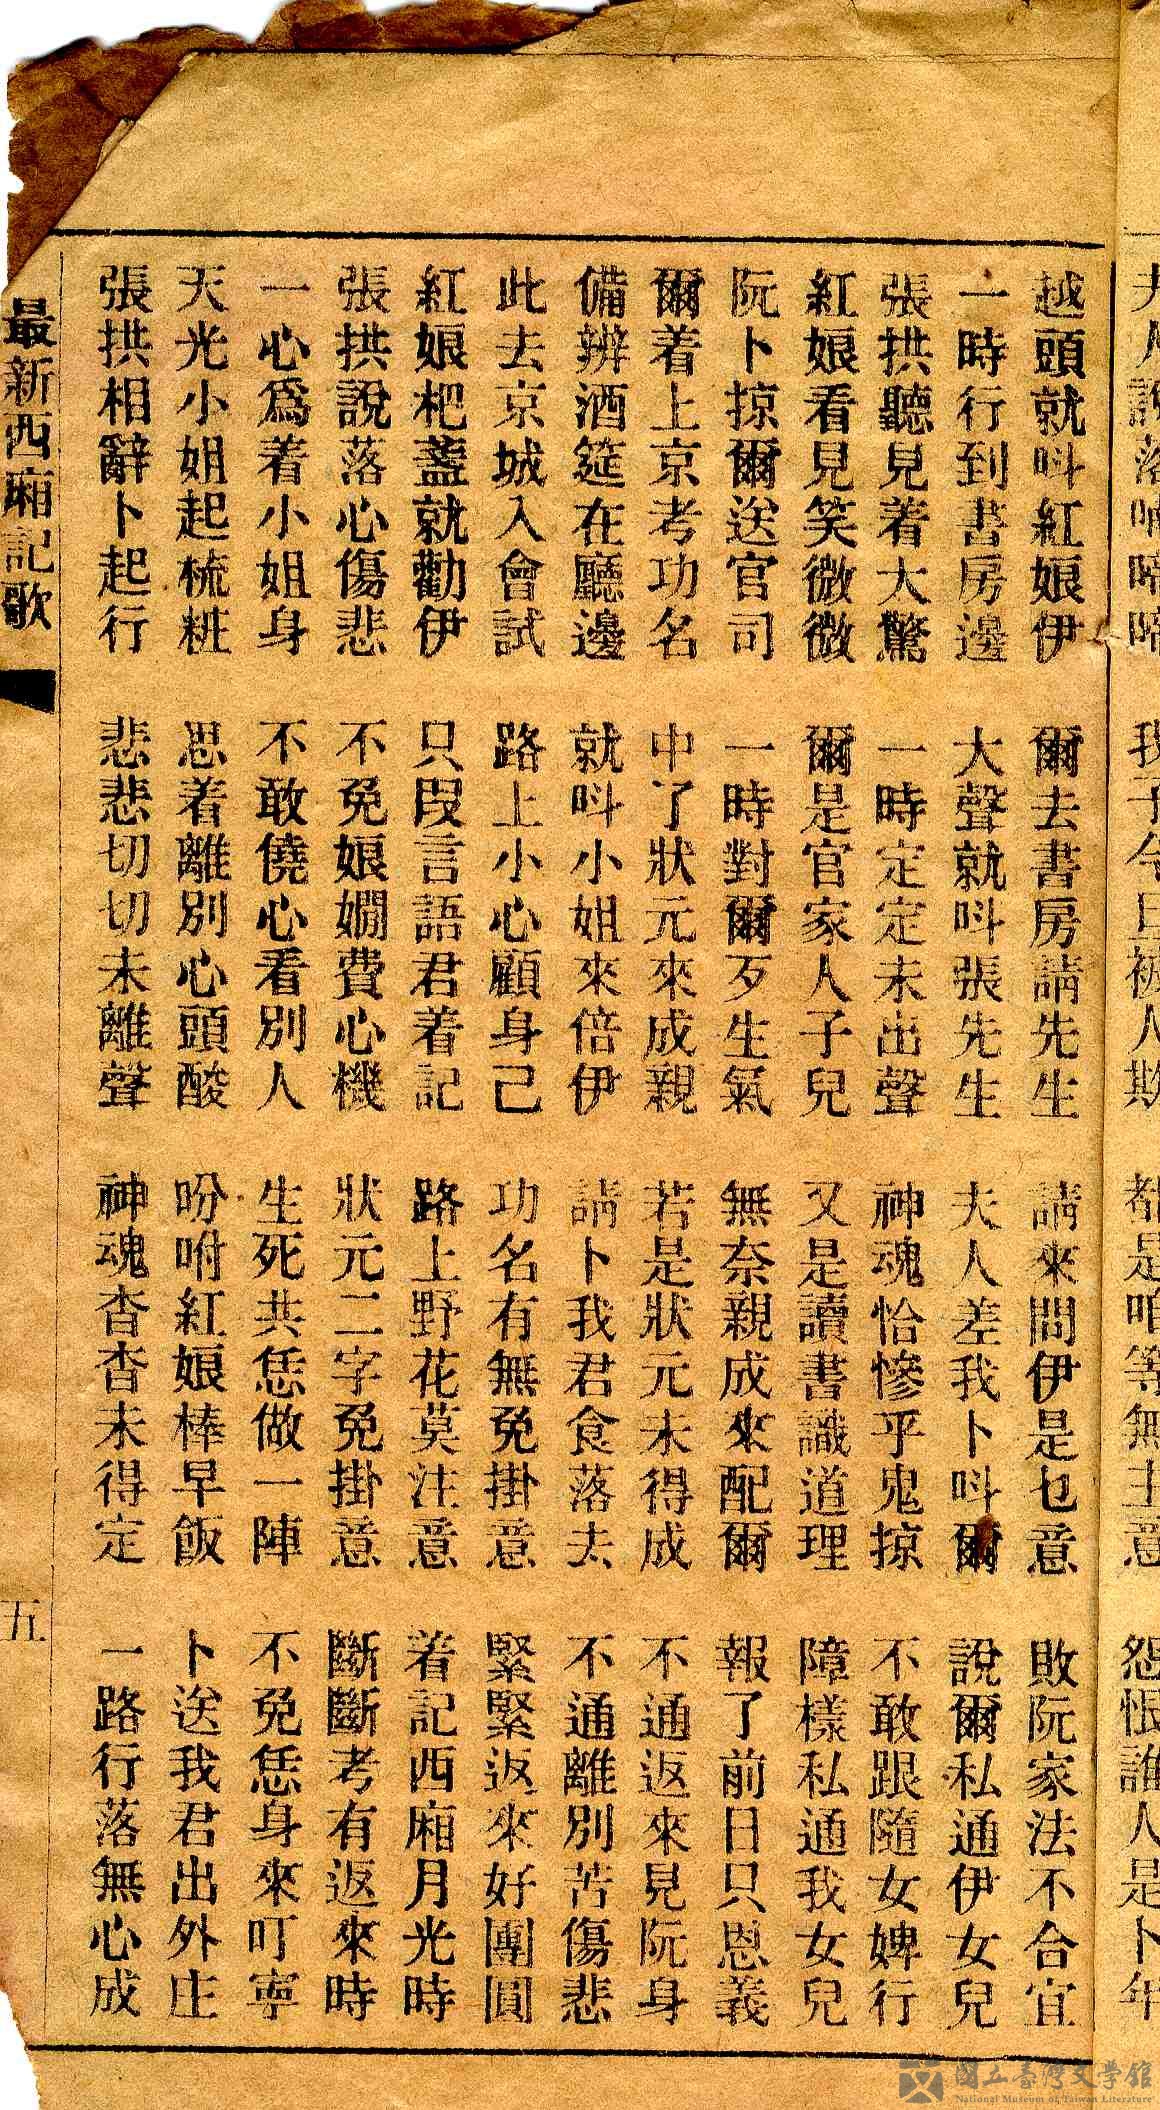 夫人說落啼啼啼　我子今日被人欺　都是咱等無主意　怨恨誰人是卜年
越頭就呌紅娘伊　爾去書房請先生　請來問伊是乜意　敗阮家法不合宜
一時行到書房邊　大聲就呌張先生　夫人差我卜呌爾　說爾私通伊女兒
張拱聽見着大驚　一時定定未出聲　神魂恰慘乎鬼掠　不敢跟隨女婢行
紅娘看見笑微微　爾是官家人子兒　又是讀書識道理　障樣私通我女兒
阮卜掠爾送官司　一時對爾歹生氣　無奈親成來配爾　報了前日只恩義
爾着上京考功名　中了狀元來成親　若是狀元未得成　不通返來見阮身
備辨酒筵在廳邊　就呌小姐來倍伊　請卜我君食落去　不通離別苦傷悲
此去京城入會試　路上小心顧身己　功名有無免掛意　緊緊返來好團圓
紅娘杷盞就勸伊　只叚言語君着記　路上野花莫注意　着記西廂月光時
張拱說落心傷悲　不免娘嫺費心機　狀元二字免掛意　斷斷考有返來時
一心爲着小姐身　不敢僥心看別人　生死共恁做一陣　不免恁身來叮寧
天光小姐起梳粧　思着離別心頭酸　吩咐紅娘棒早飯　卜送我君出外庄
張拱相辭卜起行　悲悲切切未離聲　神魂杳杳未得定　一路行落無心成
最新西廂記歌　五
國立臺灣文學館
National Museum of Taiwan Literature